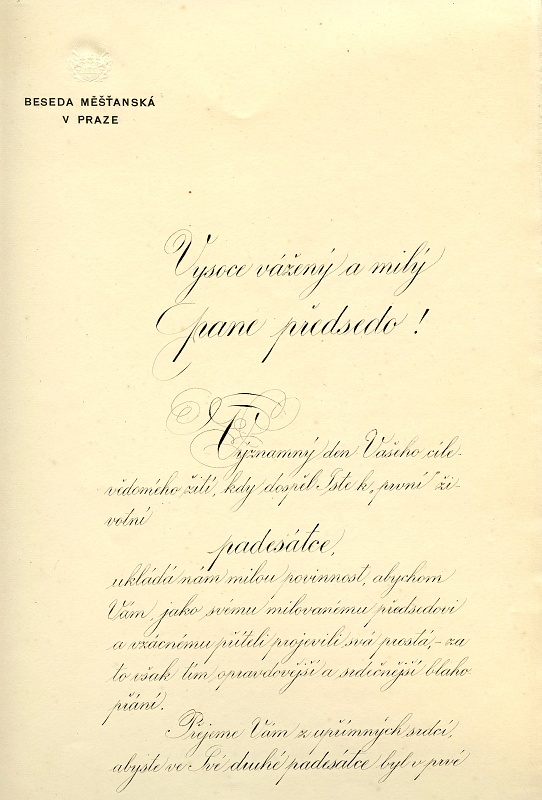 BESEDA MĚŠŤANSKÁ
V PRAZE
Vysoce vážený a milý
pane předsedo !
Významný den Vašeho cíle-
vědomého žití, kdy dospěl Jste k „první“ ži-
votní
padesátce,
ukládá nám milou povinnost, abychom
Vám, jako svému milovanému předsedovi
a vzácnému příteli projevili svá prostá, – za
to však tím opravdovější a srdečnější blaho
přání.
Přejeme Vám z upřímných srdcí,
abyste ve Své druhé padesátce byl v prvé